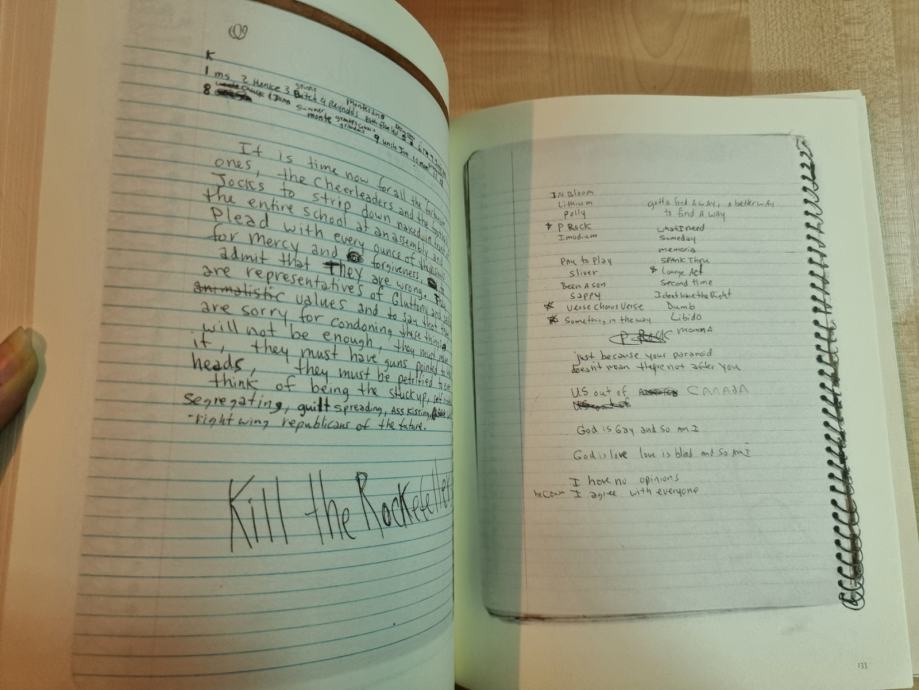 K
1 ms 2 Henke 3 Butch 4 Reynolds
8
It is time now for all the fortunate
ones, the cheerleaders and the
Jocks to strip down naked in front of
the entire school at an assembly and
plead with every ounce of
for Mercy and forgiveness,
admit that They are wrong.
are representatives of Gluttony and
animalistic values and to say that they
are sorry for condoning these things
will not be enough, they must
it, they must have guns pointed to
heads, they must be petrified to ever
think of being the stuck up,
Segregating, guilt spreading, Ass Kissing,
right wing republicans of the future.
Kill the Rockefellers
IN Bloom
Lithium gotta find a way, a better way
Polly to find A way
P Rock what I need
Imodium Someday
memoria
Pay to Play SPANK Thru
sliver Lounge Act
Been A son Second time
Sappy I dont have the Right
Verse Chorus Verse Dumb
Something in the way Libido
P-Rock MoMMA
just because your paranoid
doesn't mean theyre not after you
US out of CANADA
God is Gay and so Am I
God is love love is blind and so Am I
I have no opinions
because I agree with everyone
133